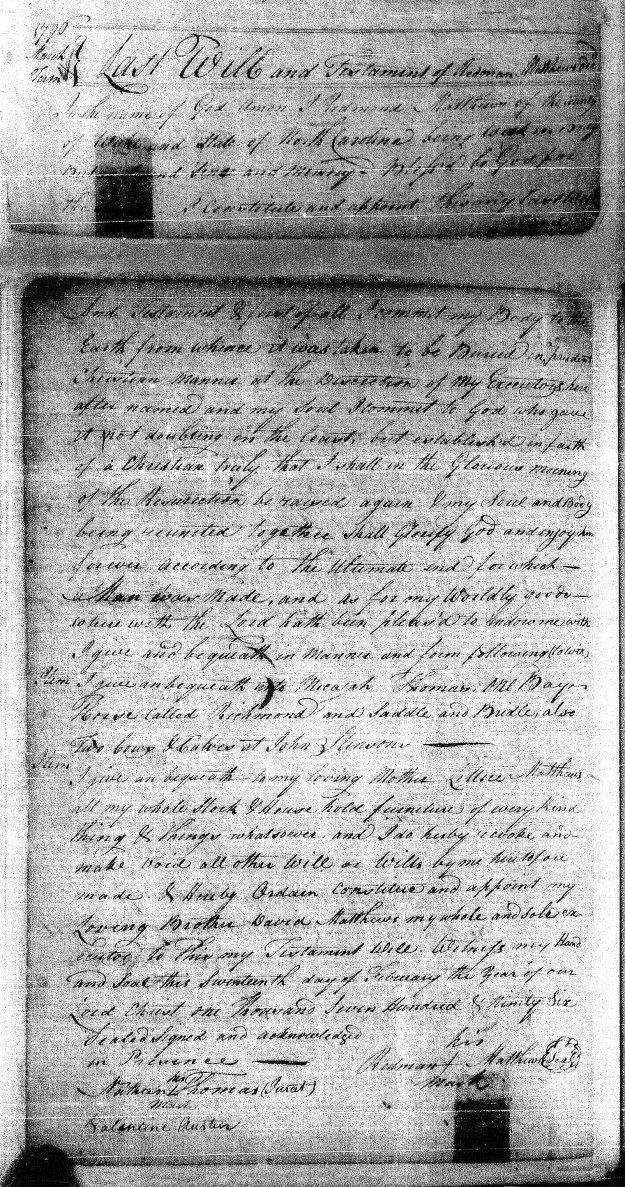 March
Term
Last Will and Testament of Redman Matthews decd
In the name of God Amen I Redmond Matthews of the County
of Wake and State of North Carolina being weak in Body
and Sense and Memory Blessed be God for
I Constitute and appoint this my last Will
and
And Testament & first of all I commit my Body to the
Earth from whence it was taken to be Buried in a prudent
Christian Manner at the Discretion of My Executors here
after named and my Soul I commit to God who gave
it not doubting in the least, but establish'd in faith
of a Christian truly that I shall in the Glorious morning
of the Resurrection be raised again & my Soul and Body
being reunited together shall Glorify God and enjoy him
forever according to the Ultimate end for which —
a Man was Made, and as for my Worldly goods —
where with the Lord hath been pleas'd to endow me with
I give and bequeath in Manner and form following
Item I give an bequeath unto Micajah Thomas one Bay
Horse called Richmond and Saddle and Bridle, also
Two Cows & Calves at John Stinsons —
Item
I give an bequeath to my loving Mother Lettice Matthews
all my whole Stock & House hold furniture of every kind
thing & things whatsoever and I do herby revoke and
make void all other Will or Wills by me heretofore
made & Hereby Ordain Constitute and appoint my
Loving Brother David Matthews my whole and sole ex-
ecutor to this my Testament Will. Witness my Hand
and Seal this Seventeenth day of Febuary the Year of our
Lord Christ one Thousand Seven Hundred & Ninety Six
Sealed Signed and acknowledged
in Presence —
his
Redman + Matthews Seal
mark
his
Nathan Thomas (Jurat)
mark
Valentine Austin